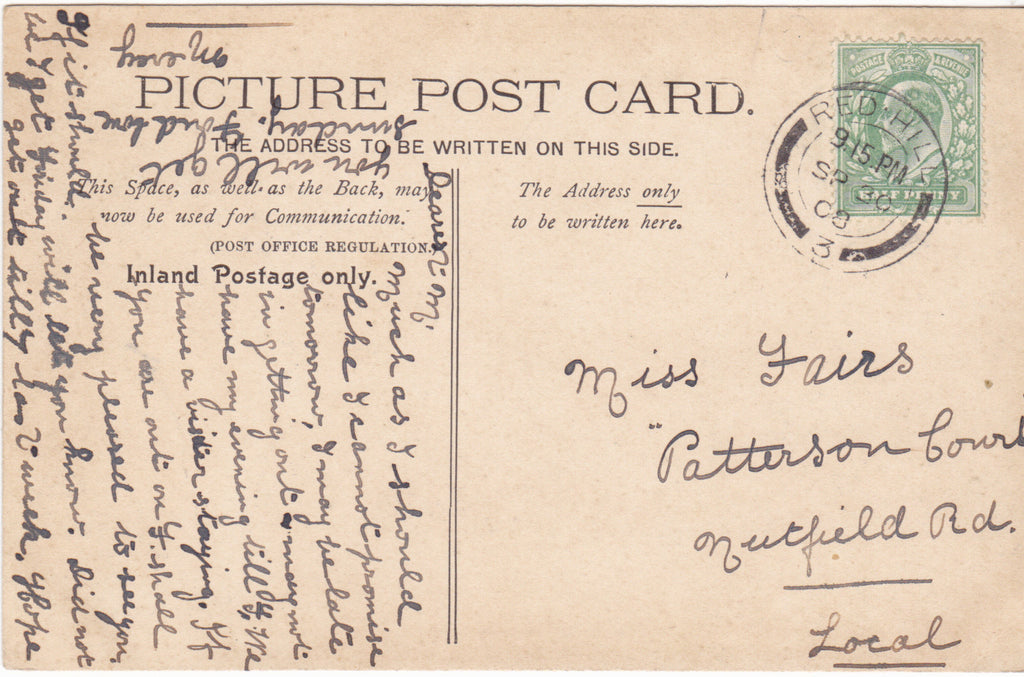 PICTURE POST CARD.
THE ADDRESS TO BE WRITTEN ON THIS SIDE.
This Space, as well as the Back, may
now be used for Communication.
(POST OFFICE REGULATION.)
Inland Postage only.
The Address only
to be written here.
POSTAGE & REVENUE
ONE PENNY
REDHILL
9.15 PM
SP 30
08
3
Miss Fairs
"Patterson Court
Nutfield Rd.
Local
Dearest M.
Much as I should
like I cannot promise
tomorrow, I may be late
in getting out & may not
have my evening till F. We
have a vister staying. If
you are out on F. shall
be very pleased to see you.
If it should.
be I get Friday will let you know. Did not
get out till last week. Hope
you will get
Sunday. Fond love
Mercy